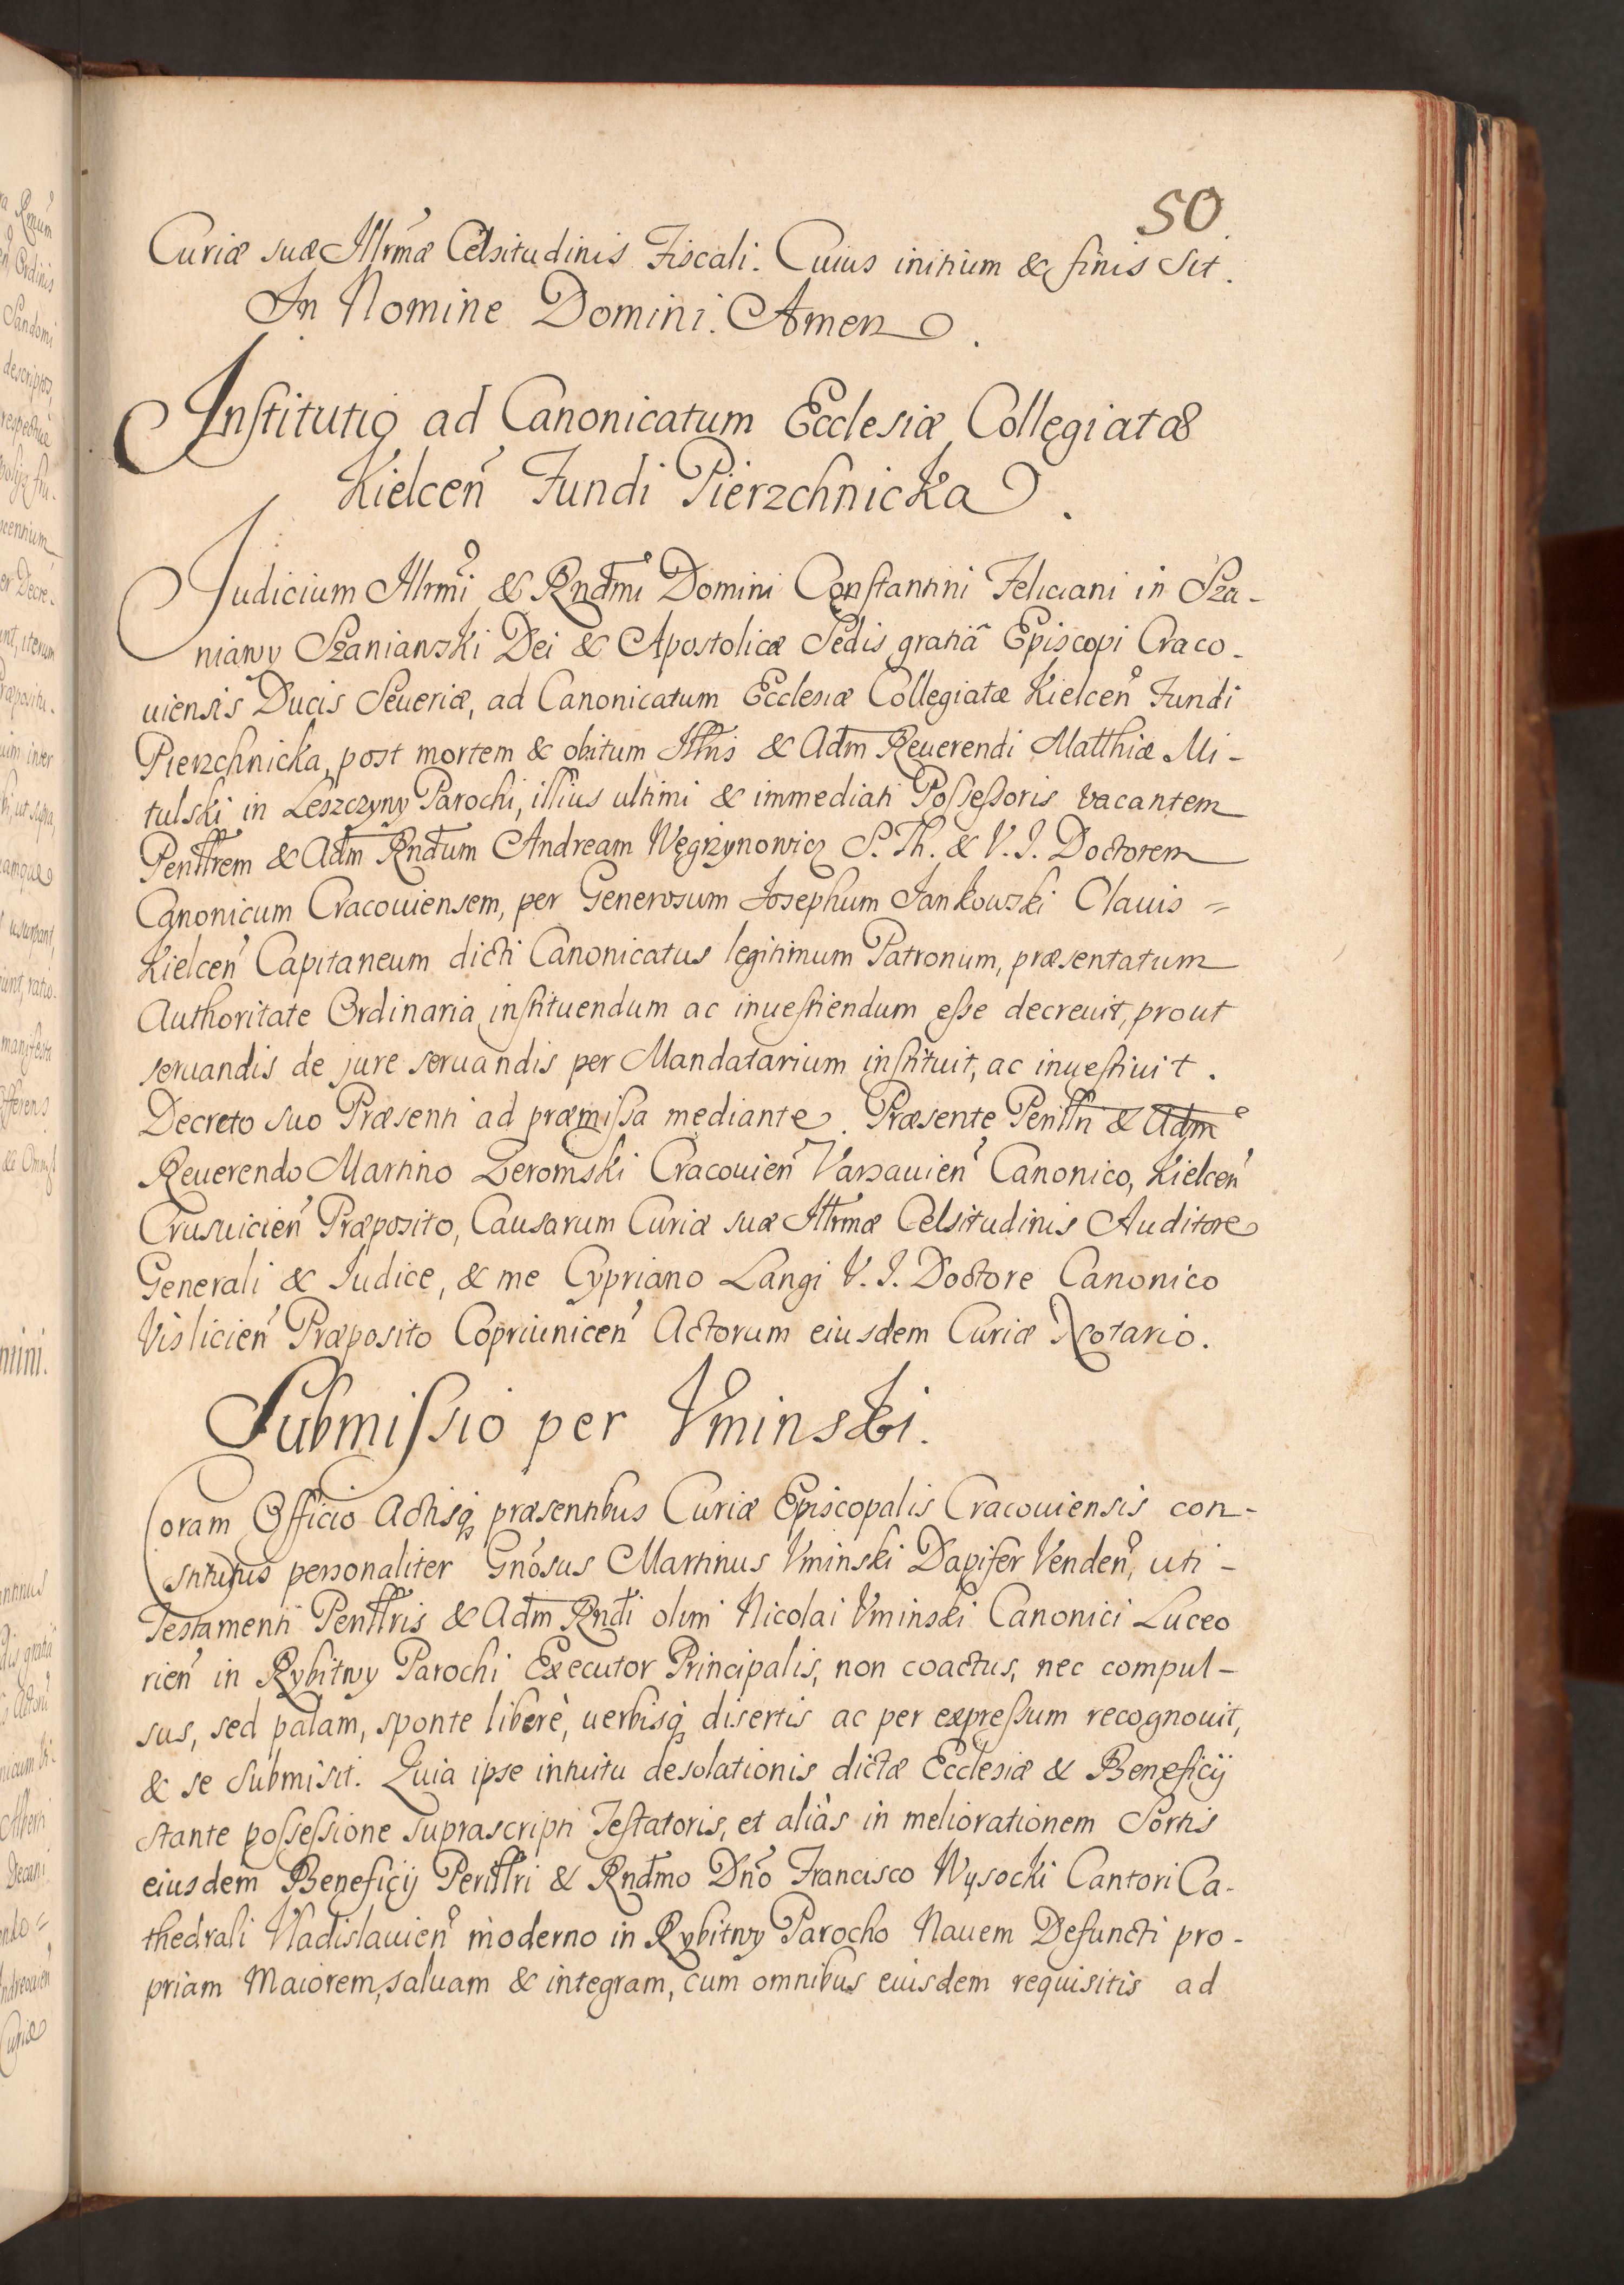 50
Curiæ suæ Illrmæ Celsitudinis Fiscali. Cuius initium & finis sit.
In Nomine Domini. Amen.
Institutio ad Canonicatum Ecclesiæ Collegiatæ
Kielcen̄ Fundi Pierzchnicka.
Judicium Illrmi & Rndmi Domini Constantini Feliciani in Sza-
niawy Szaniawski Dei & Apostolicæ Sedis gratiâ Episcopi Craco-
uiensis Ducis Seueriæ, ad Canonicatum Ecclesiæ Collegiatæ Kielcen̄ Fundi
Pierzchnicka, post mortem & obitum Illris & Adm Reuerendi Matthiæ Mi-
tulski in Leszczyny Parochi, illius ultimi & immediati Possessoris vacantem
Perillrem & Adm Rndum Andream Węgrzynowicz S. Th. & V. J. Doctorem
Canonicum Cracouiensem, per Generosum Josephum Jankowski Clauis =
Kielcen̄ Capitaneum dicti Canonicatus legitimum Patronum, præsentatum
Authoritate Ordinaria instituendum ac inuestiendum esse decreuit, prout
seruandis de jure seruandis per Mandatarium instituit, ac inuestiuit.
Decreto suo Præsenti ad præmissa mediante. Præsente Perillri & Adm
Reuerendo Martino Zeromski Cracouien̄ Varsauien̄ Canonico, Kielcen̄
Crusuicien̄ Præposito, Causarum Curiæ suæ Illrmæ Celsitudinis Auditore
Generali & Iudice, & me Cypriano Langi V. J. Doctore Canonico
Vislicien̄ Præposito Copriunicen̄ Actorum eiusdem Curiæ Notario.
Submissio per Vminski.
Coram Officio Actisq̧ præsentibus Curiæ Episcopalis Cracouiensis con-
stitutus personaliter Gnosus Martinus Vminski Dapifer Venden̄, uti -
Testamenti Perillris & Adm Rndi olim Nicolai Vminski Canonici Luceo
rien̄ in Rybitwy Parochi Executor Principalis, non coactus, nec compul-
sus, sed palam, sponte liberè, uerbisq̧ disertis ac per expressum recognouit,
& se submisit. Quia ipse intuitu desolationis dictæ Ecclesiæ & Beneficij
stante possessione suprascripti Testatoris, et aliàs in meliorationem Sortis
eiusdem Beneficij Perillri & Rndmo Dno Francisco Wysocki Cantori Ca-
thedrali Vladislauien̄ moderno in Rybitwy Parocho Nauem Defuncti pro-
priam Maiorem, saluam & integram, cum omnibus euisdem requisitis ad